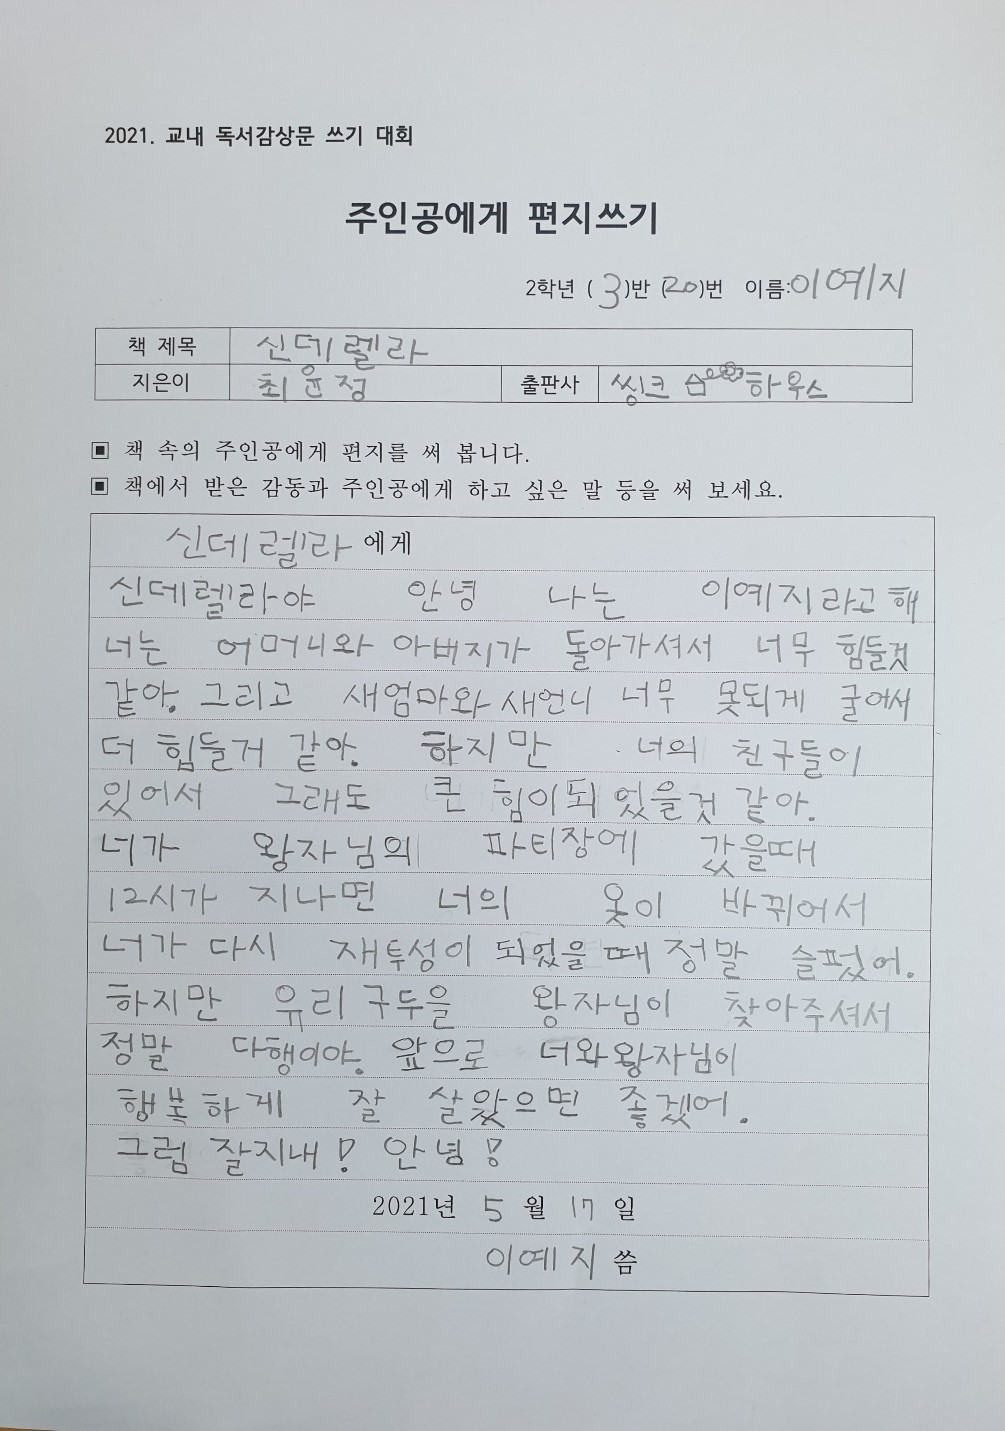 2021. 교내 독서감상문 쓰기 대회
주인공에게 편지쓰기
2학년 ( 3 )반 (20)번 이름:이예지
책 제목 신데렐라
지은이 최윤정 출판사 씽크 하우스
▣ 책 속의 주인공에게 편지를 써 봅니다.
▣ 책에서 받은 감동과 주인공에게 하고 싶은 말 등을 써 보세요.
신데렐라 에게
신데렐라야 안녕 나는 이예지라고 해
너는 어머니와 아버지가 돌아가셔서 너무 힘들것
같아. 그리고 새엄마와 새언니 너무 못되게 굴어서
더 힘들거 같아. 하지만 너의 친구들이
있어서 그래도 큰 힘이되 었을것 같아.
너가 왕자님의 파티장에 갔을때
12시가 지나면 너의 옷이 바뀌어서
너가 다시 재투성이 되었을 때 정말 슬펐어.
하지만 유리 구두을 왕자님이 찾아주셔서
정말 다행이야. 앞으로 너와왕자님이
행복하게 잘 살았으면 좋겠어.
그럼 잘지내! 안녕!
2021년 5 월 17 일
이예지 씀